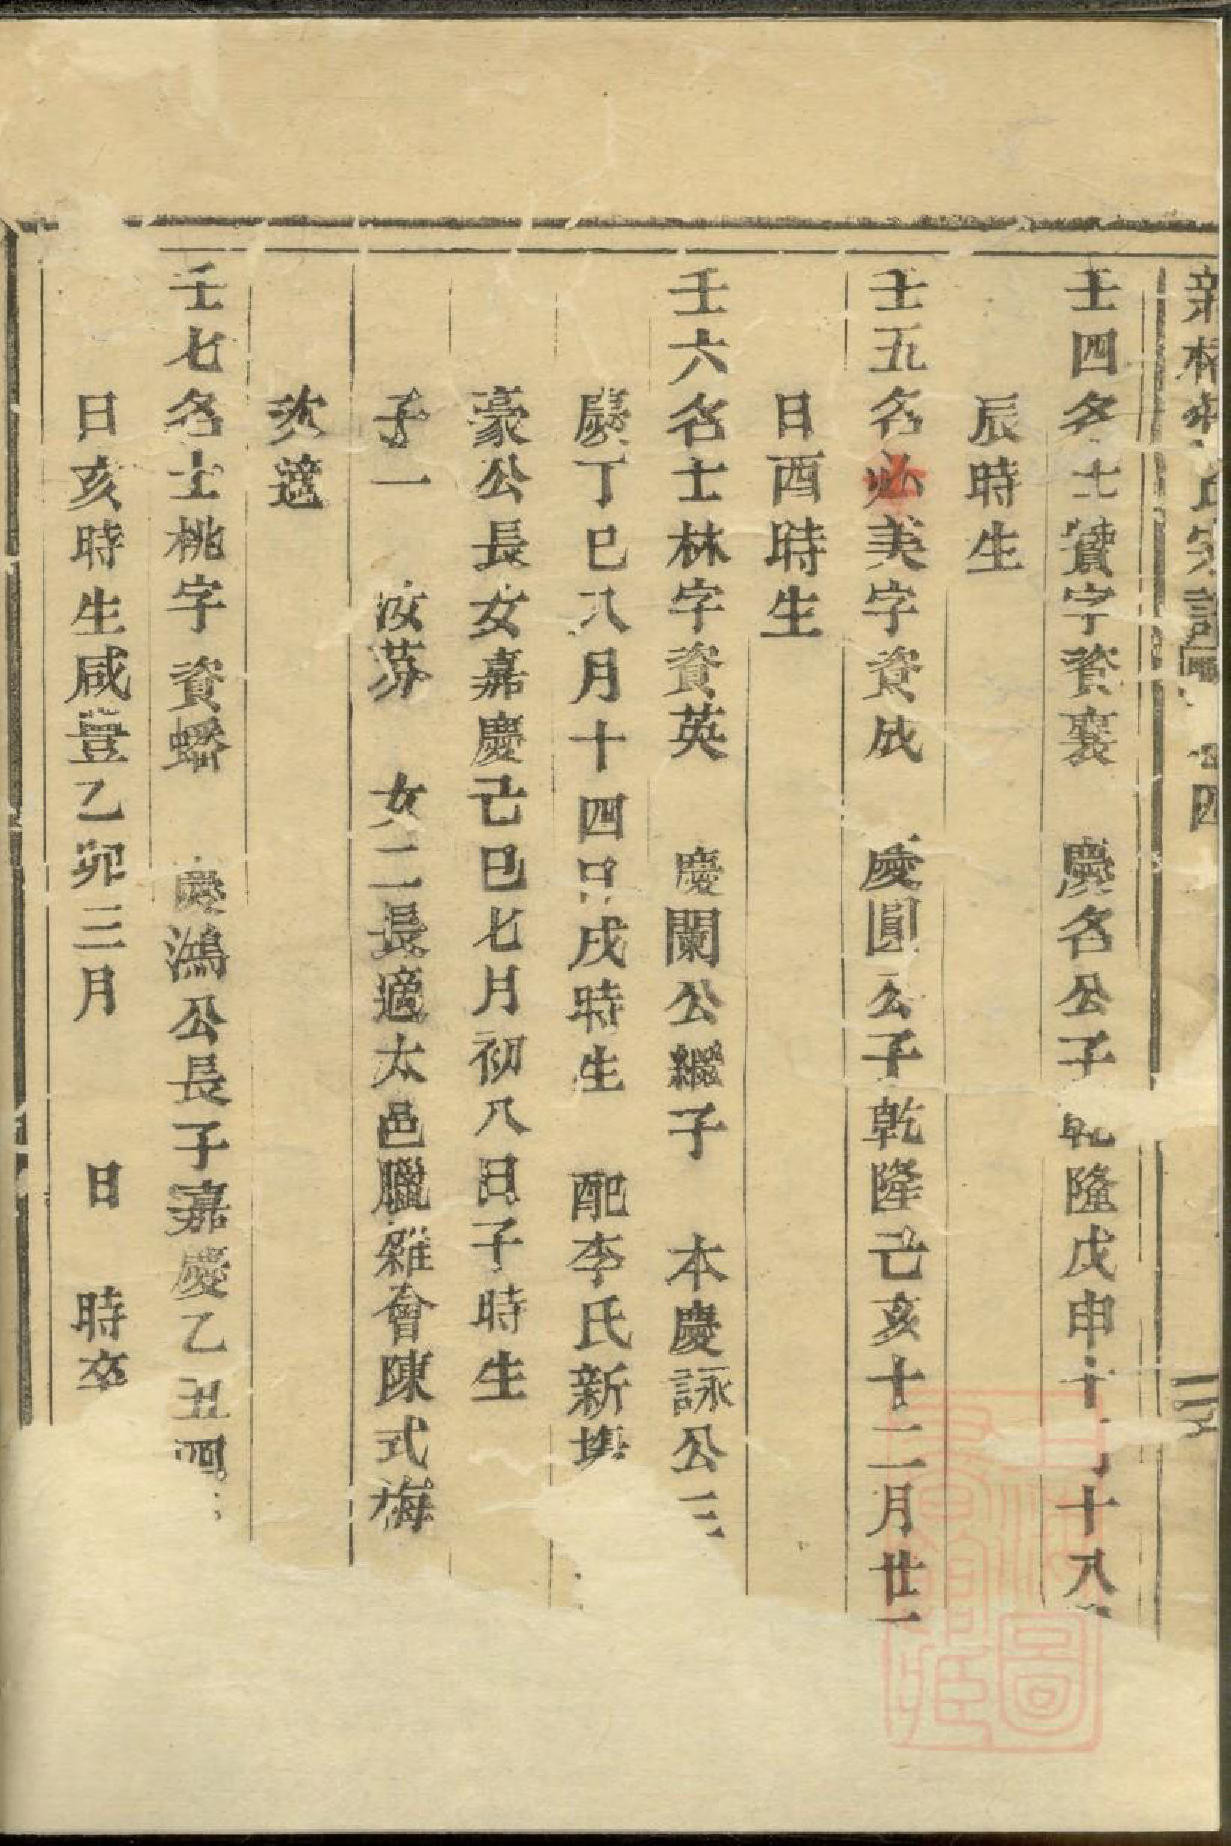 氏宗譜 四
壬四名士贊字資襄 慶名公子乾隆戊申十月十八
辰時生
壬五名必美字資成 慶圓公子乾隆己亥十二月廿
日酉時生
壬六名士林字資英 慶闌公繼子 本慶詠公三
慶丁巳八月十四日戌時生 配李氏新
豪公長女嘉慶己巳七月初八日子時生
子一 汝芬 女二長適太邑臘雞會陳式梅
次適
壬七名士桃字資蟠 慶鴻公長子嘉慶乙丑四
日亥時生咸豐乙卯三月 日 時卒